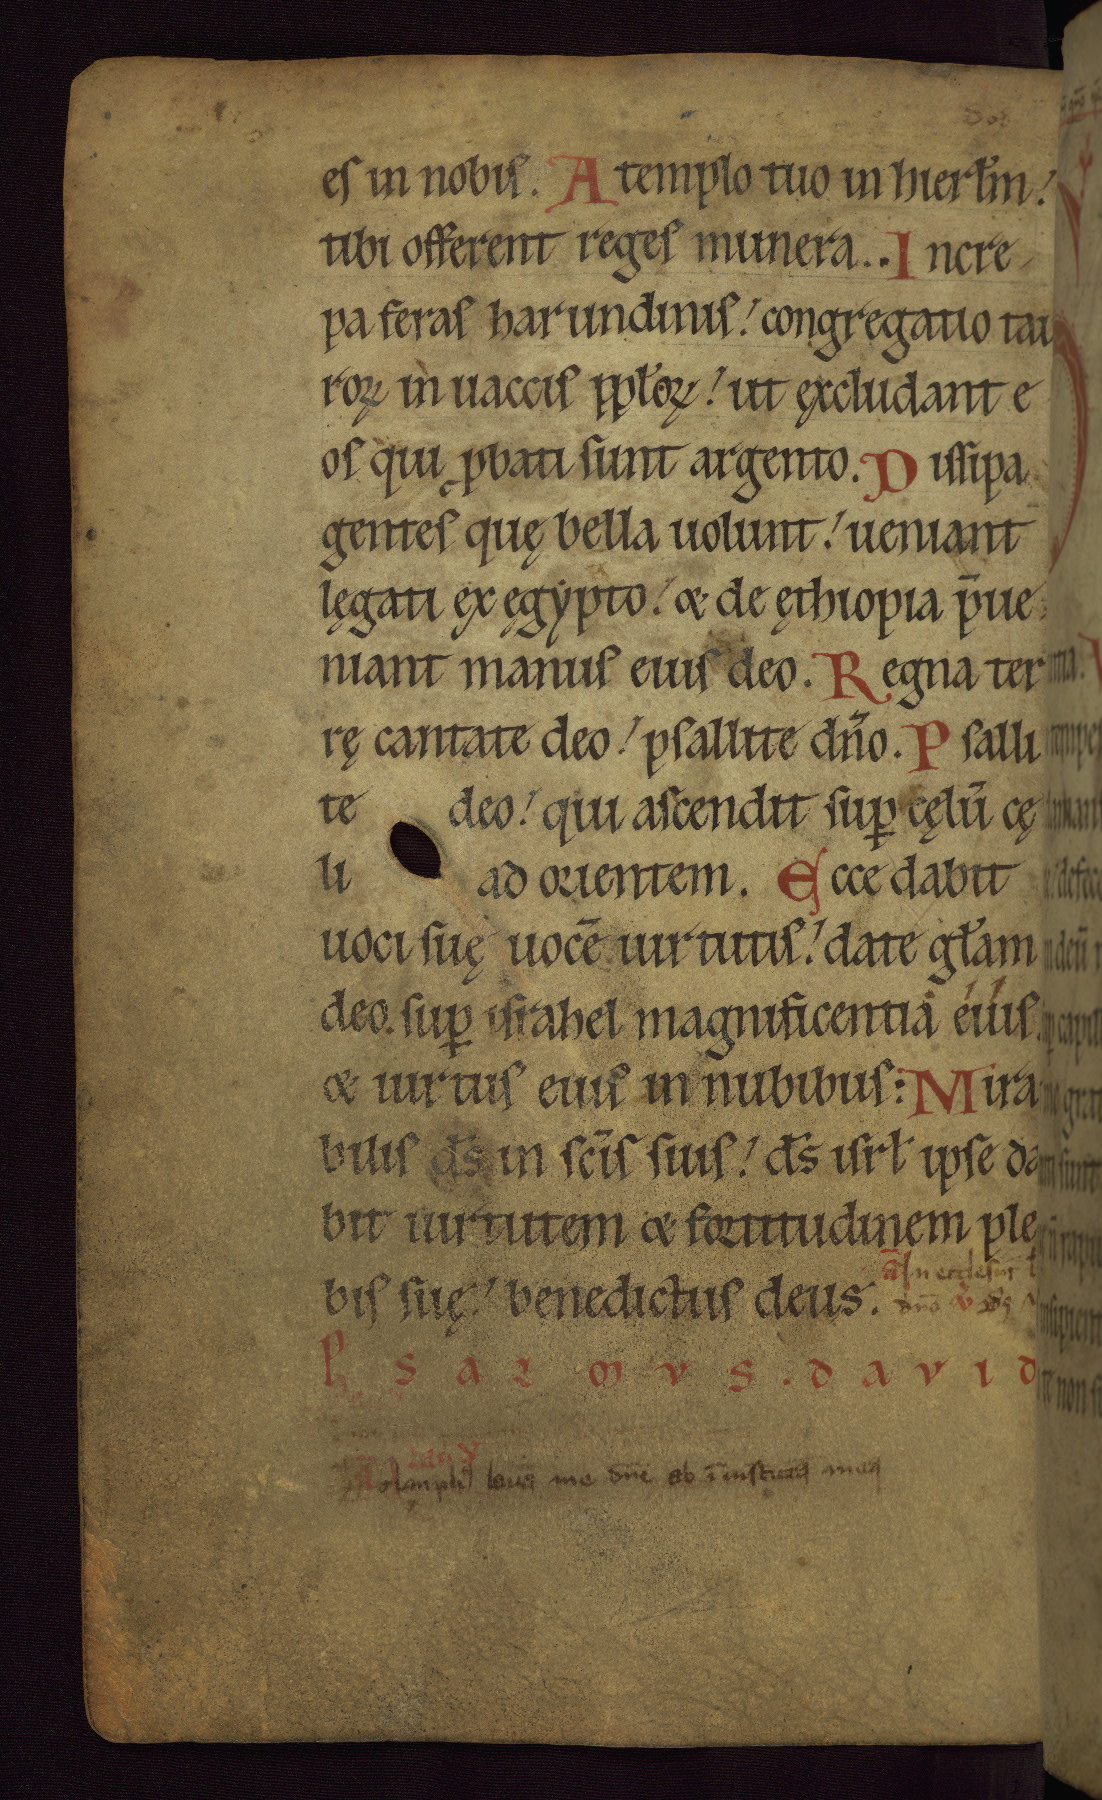 es in nobis. A templo tuo in hierl̄m!
tibi offerent reges munera.. Incre
pa feras harundinis! congregatio tau
roꝝ in uaccis ppl̄oꝝ! ut ęxcludant e
os qui ꝓbati sunt argento. Dissipa
gentes quę bella uolunt! ueniant
lęgati ęx ęgẏpto! & de ęthiopia p̄ue
niant manus eius deo. Regna ter
rę cantate deo! psallite dn̄o. Psalli
te deo! qui ascendit suꝑ cęlū cę
li ad orientem. Ecce dabit
uoci suę uocē uirtutis! date gl̄am
deo. suꝑ israhel magnificentiā eius
& uirtus eius in nubibus: Mira
bilis d̄s in sc̄is suis! d̄s isrl̄ ipse da
bit uirtutem & fortitudinem ple
bis suę! benedictus deus.
a͞ In ecclesiis
dn̄o
PSALMVS. DAVID
me dn̄e ab